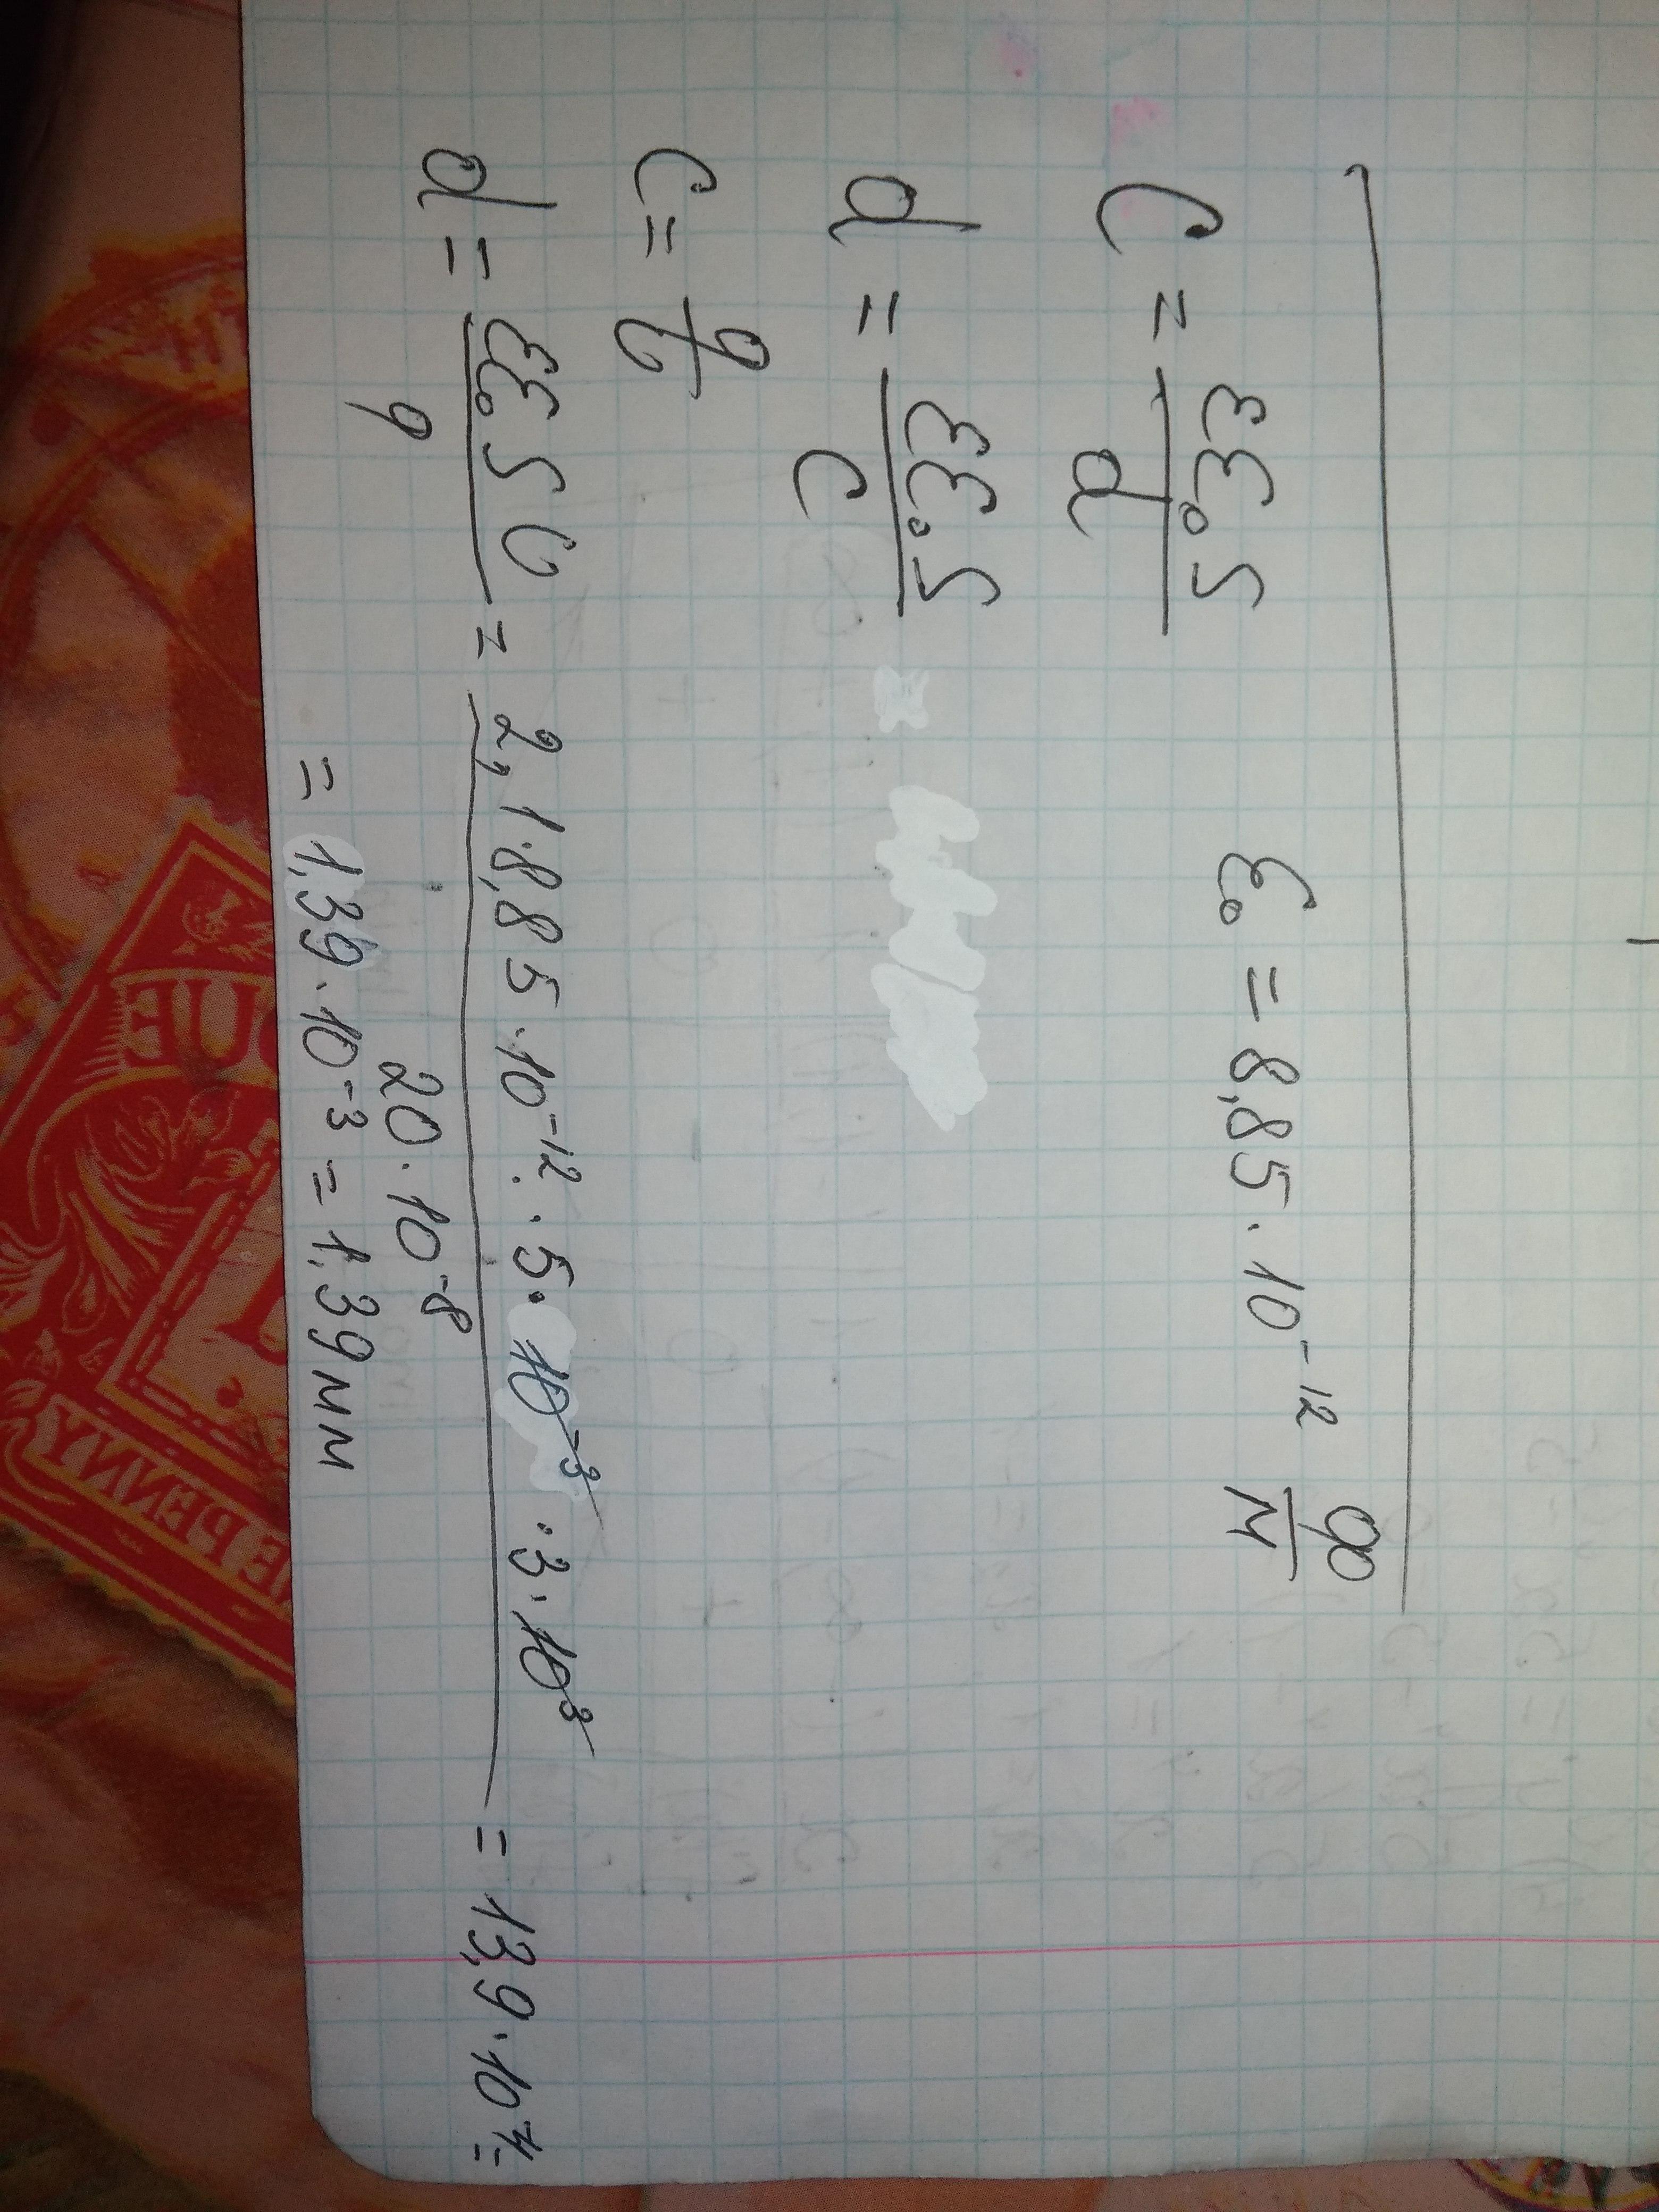 C = εε₀S / d    ε₀ = 8,85 · 10⁻¹² Ф/м
d = εε₀S / C
C = q / U
d = εε₀SU / q = 2,1 · 8,85 · 10⁻¹² · 5 · 10⁻³ · 3 · 10³ / 20 · 10⁻⁸ = 13,9 · 10⁻⁴ =
= 1,39 · 10⁻³ = 1,39 мм
NE PENNY